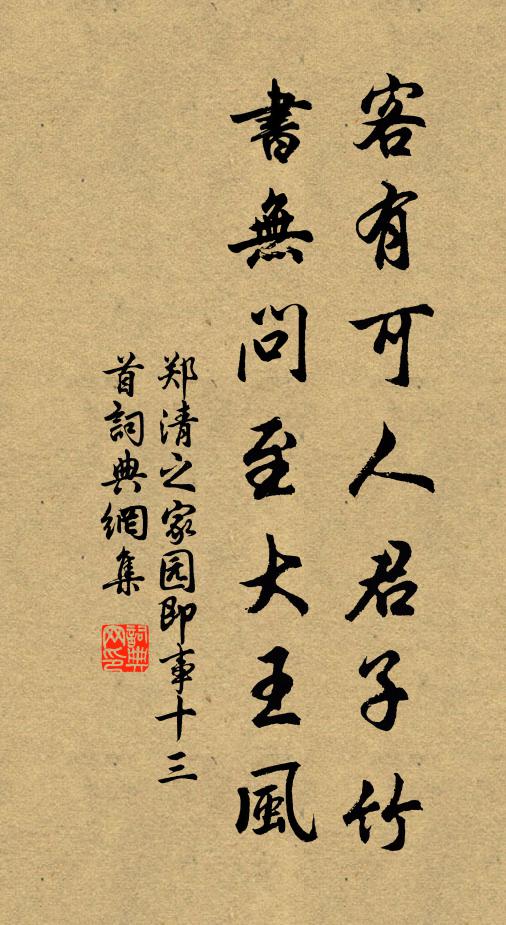 客有可人君子竹
書無問至大王風
郑清之家园即事十三
首詞典網集
詞典网印